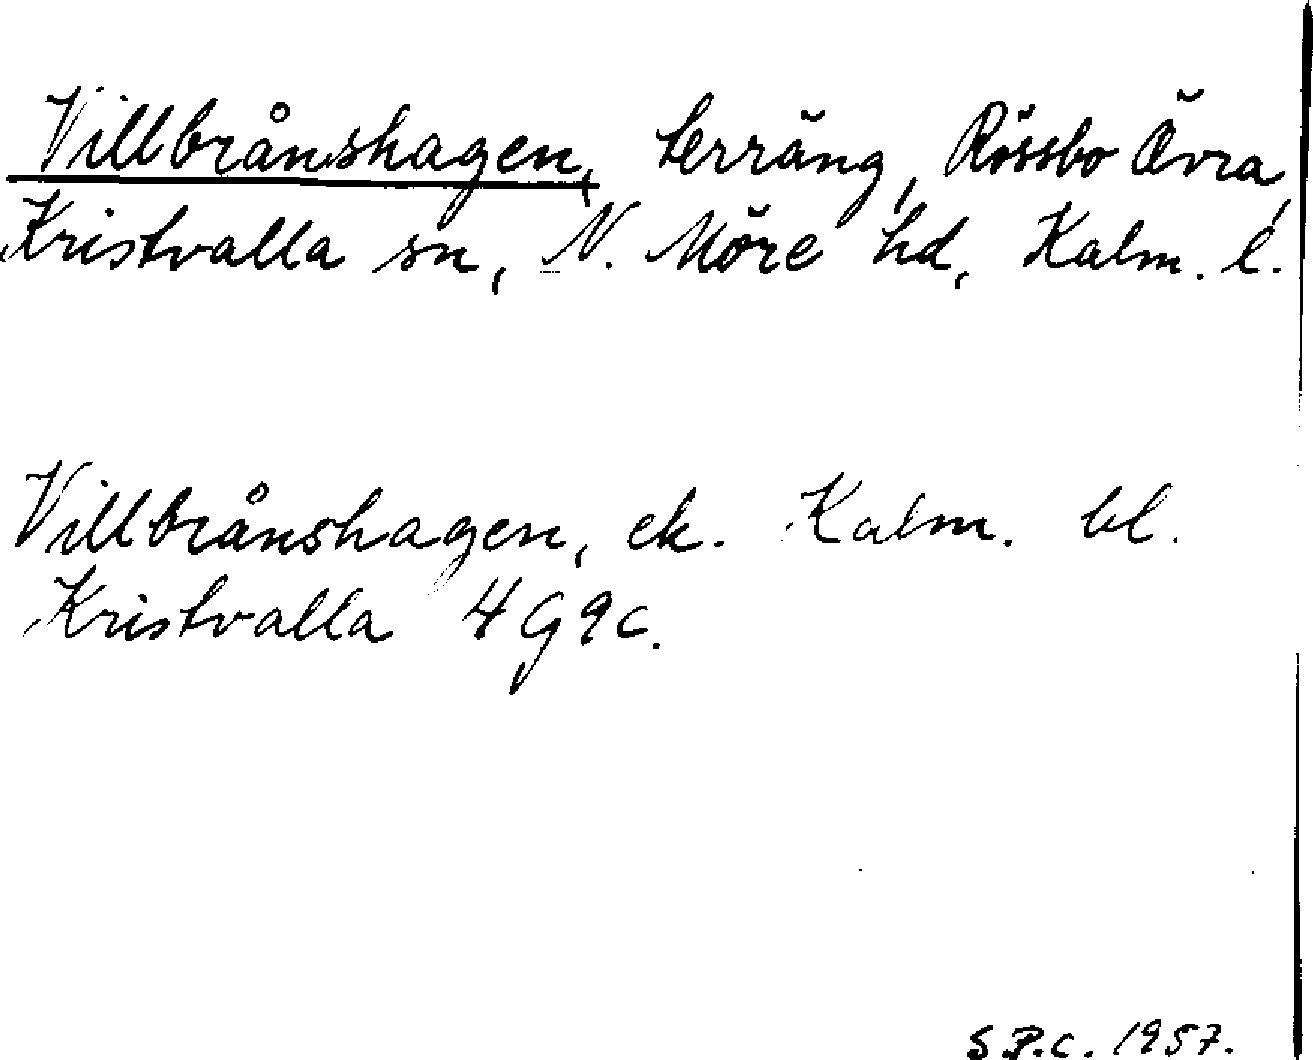 Villbrånshagen, terräng, Rössbo Övra,
Kristvalla sn, N. Möre hd, Kalm. l.
Villbrånshagen, ek. Kalm. bl.
Kristvalla 4G9c.
S.P.C. 1957.